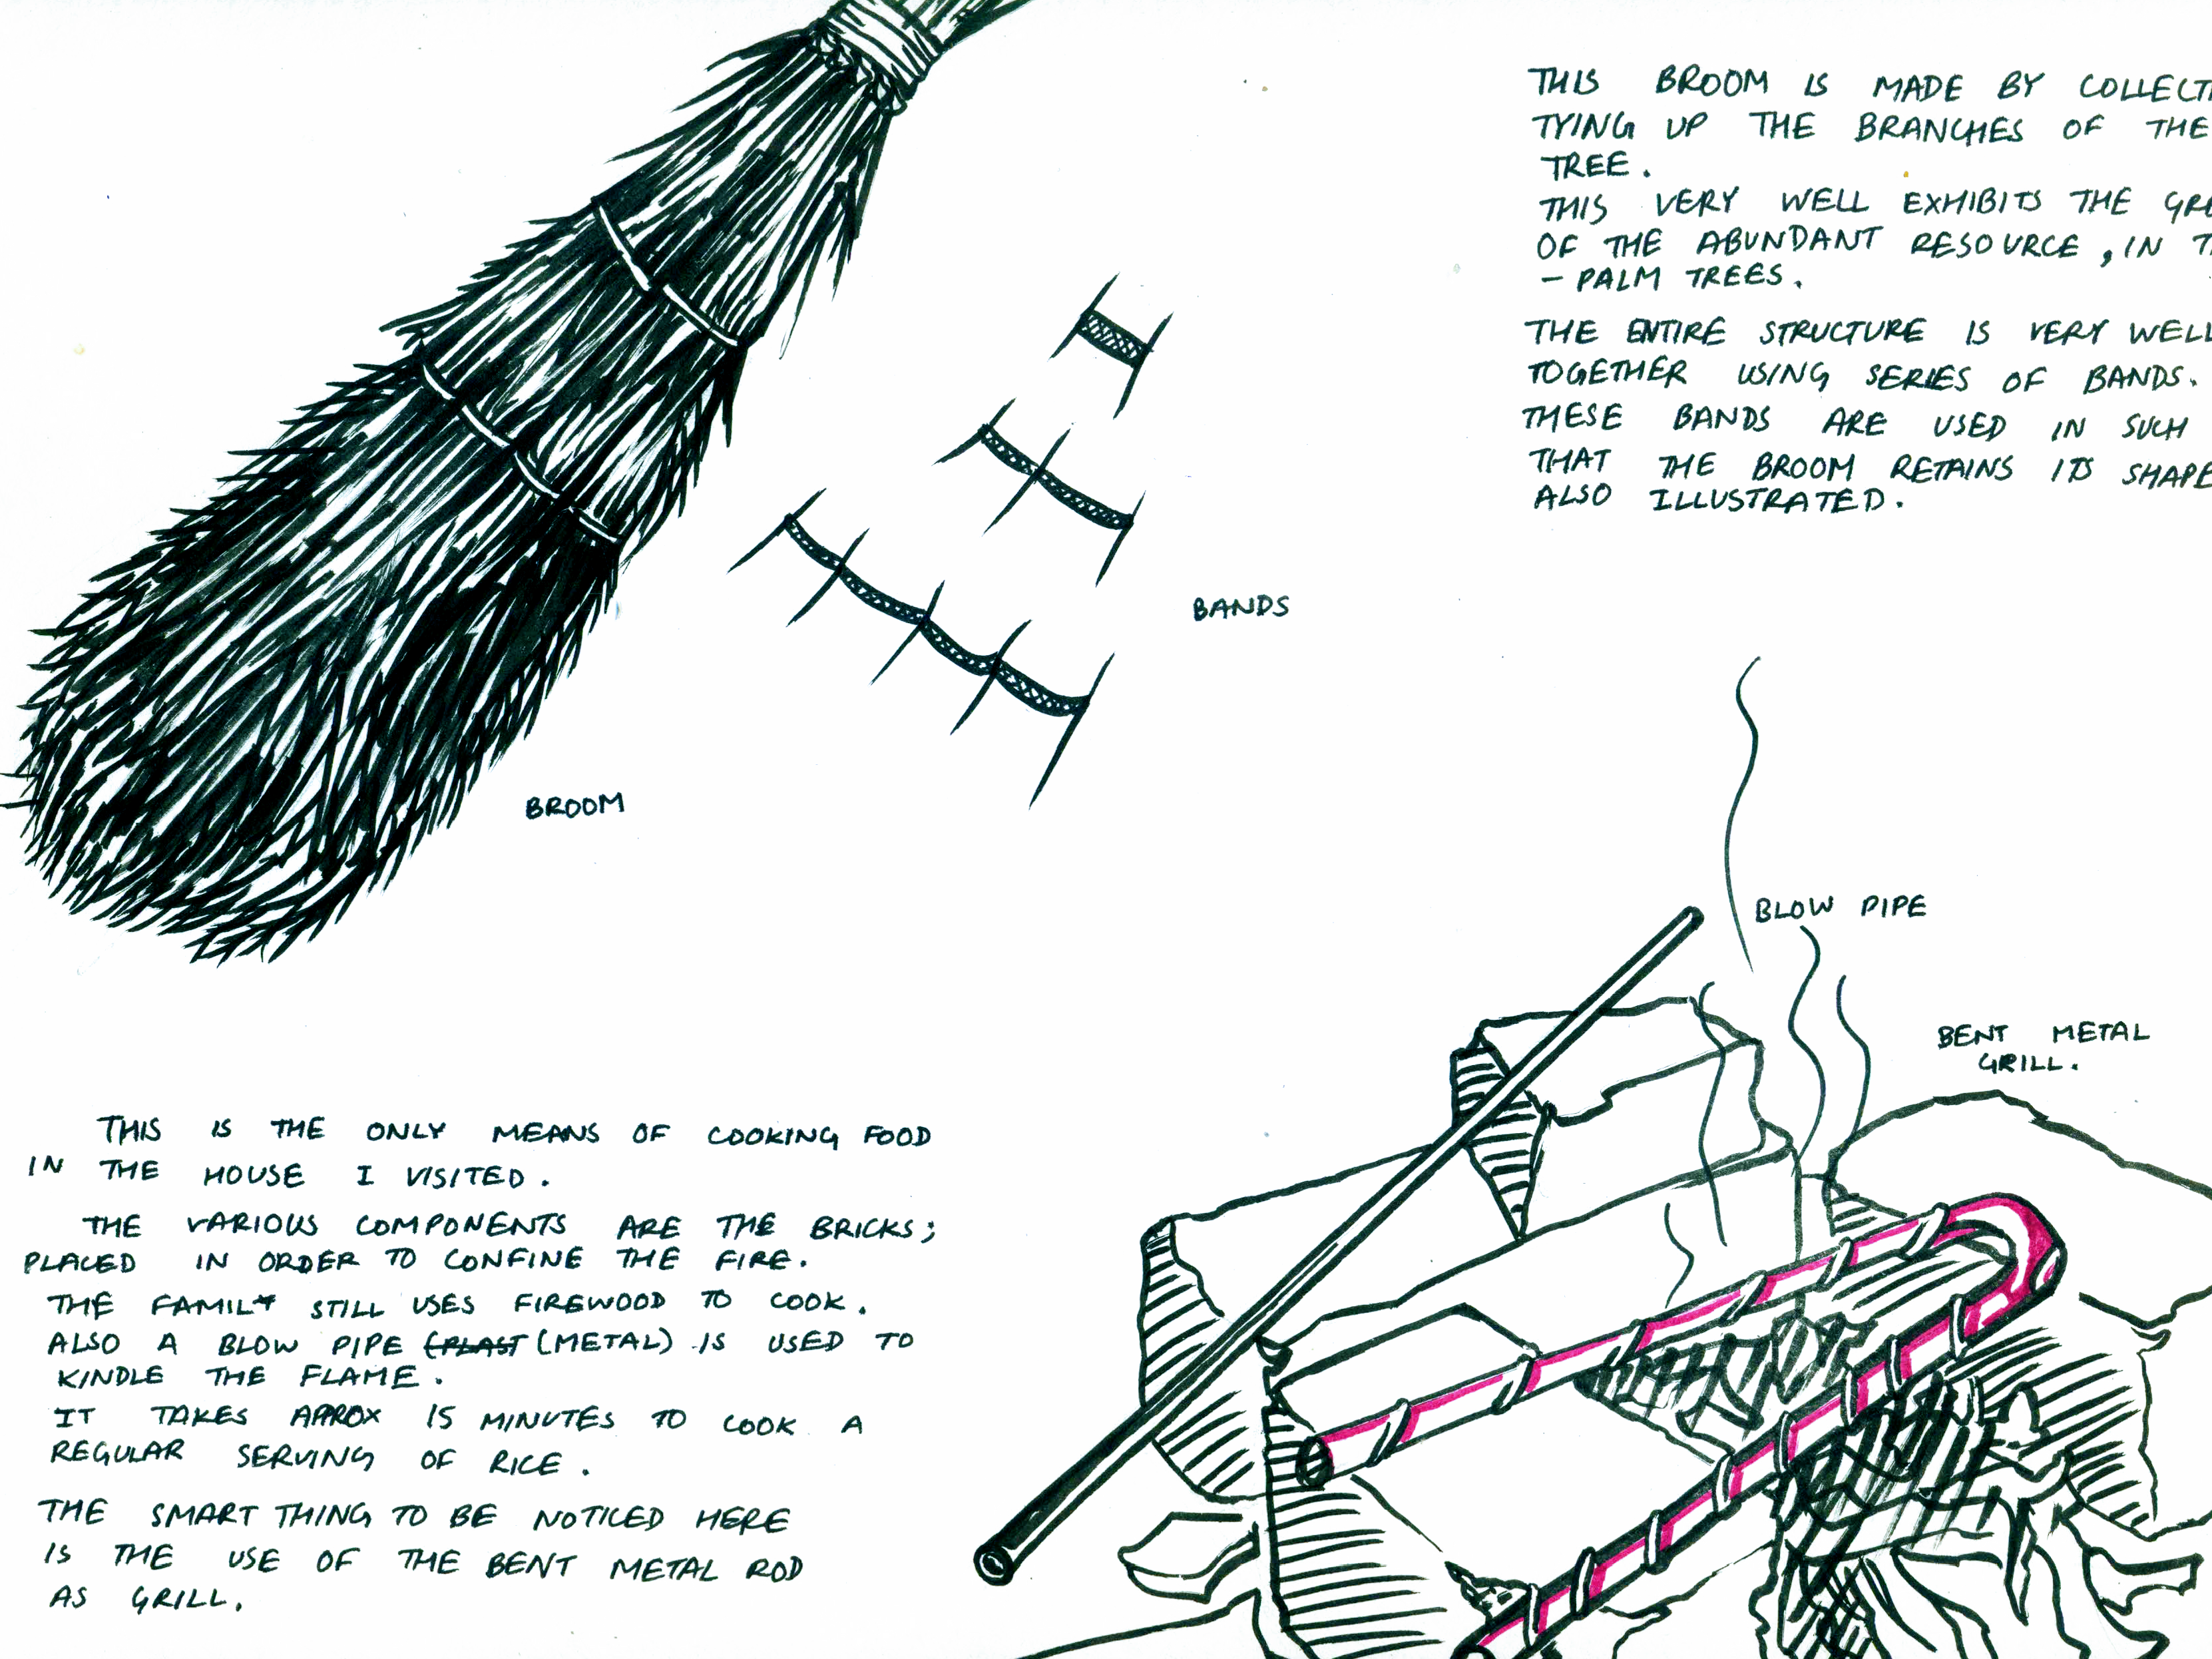 THIS BROOM IS MADE BY COLLECTI
TYING UP THE BRANCHES OF THE
TREE.
THIS VERY WELL EXHIBITS THE GRE
OF THE ABUNDANT RESOURCE, IN T
- PALM TREES.
THE ENTIRE STRUCTURE IS VERY WELL
TOGETHER USING SERIES OF BANDS.
THESE BANDS ARE USED IN SUCH
THAT THE BROOM RETAINS ITS SHAPE
ALSO ILLUSTRATED.
BANDS
BROOM
BLOW PIPE
BENT METAL
GRILL.
THIS IS THE ONLY MEANS OF COOKING FOOD
IN THE HOUSE I VISITED.
THE VARIOUS COMPONENTS ARE THE BRICKS;
PLACED IN ORDER TO CONFINE THE FIRE.
THE FAMILY STILL USES FIREWOOD TO COOK.
ALSO A BLOW PIPE (PLAST (METAL) IS USED TO
KINDLE THE FLAME.
IT TAKES APROX 15 MINUTES TO COOK A
REGULAR SERVING OF RICE.
THE SMART THING TO BE NOTICED HERE
IS THE USE OF THE BENT METAL ROD
AS GRILL.